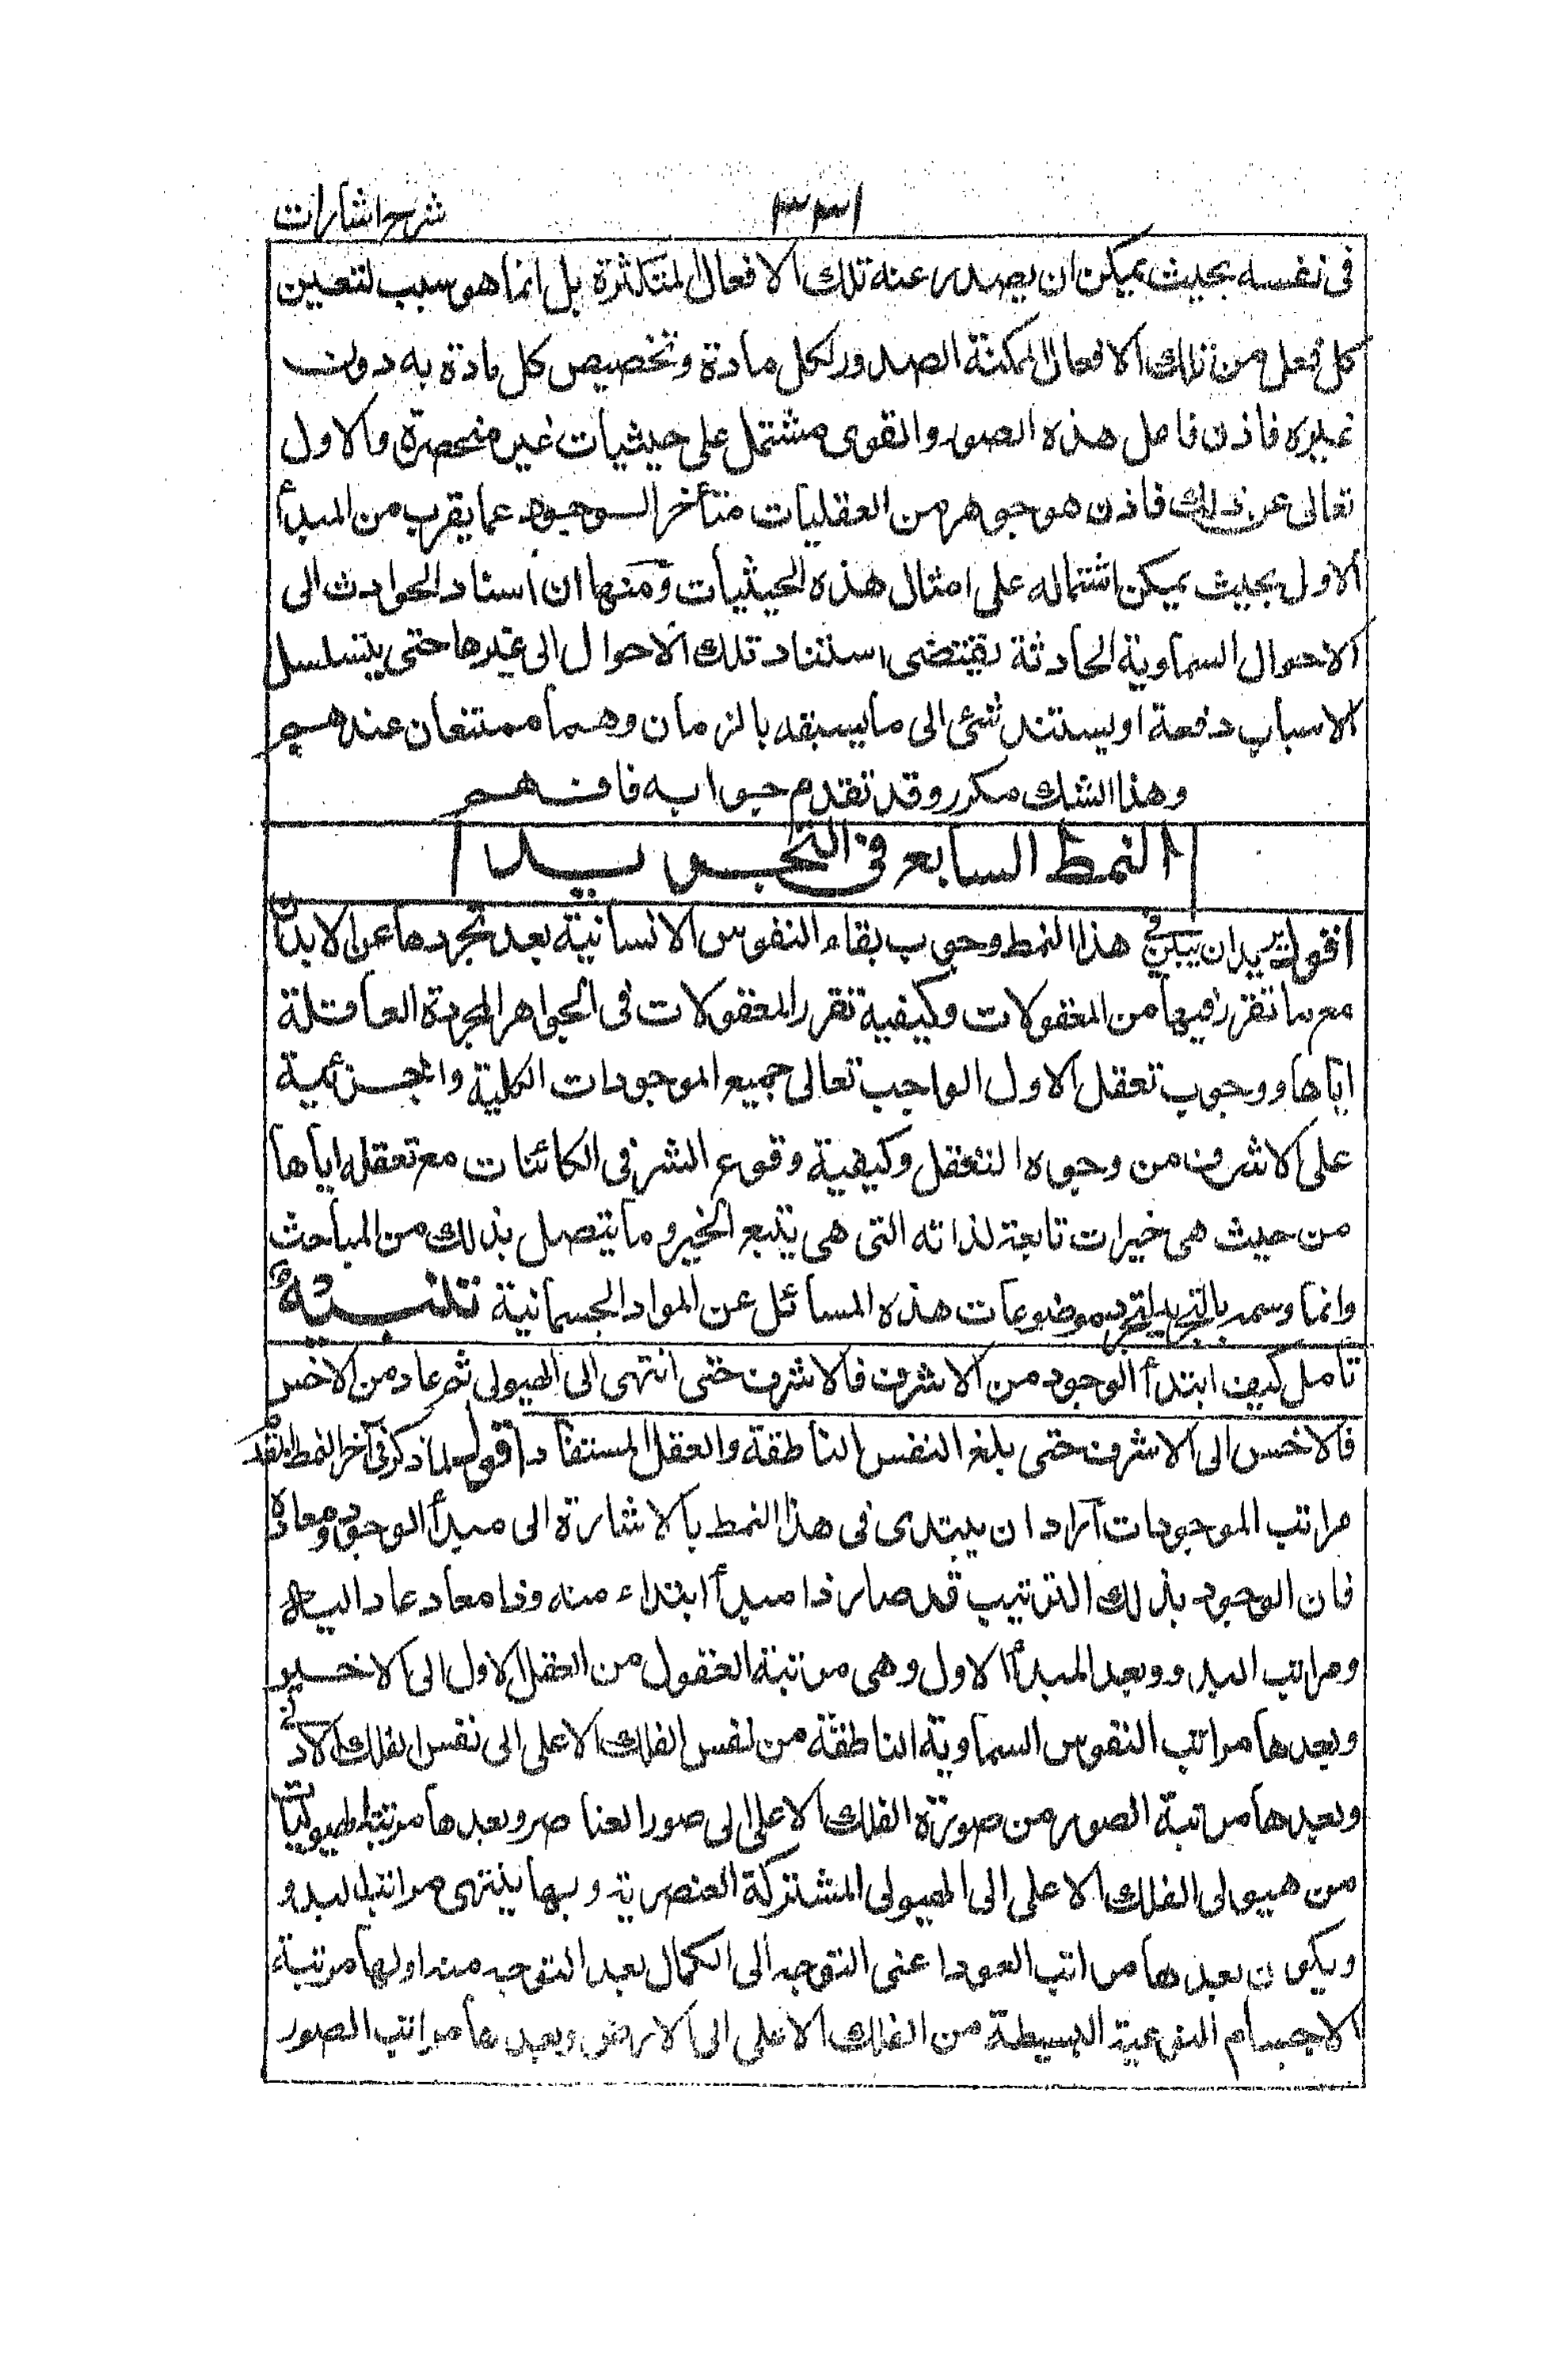 شرح اشارات
٣٣١
فى نفسه بحيث يمكن ان يصدر عنه تلك الافعال المتكثرة بل انما هو سبب لتعيين
كل فعل من تلك الافعال الممكنة الصدور لكل مادة وتخصيص كل مادة به دون
غيره فاذن فاعل هذه الصور والقوى مشتمل على حيثيات غير منحصرة والاول
تعالى عن ذلك فاذن هو جوهر من العقليات متأخر الوجود عما يقرب من المبدأ
الاول بحيث يمكن اشتماله على امثال هذه الحيثيات ومنها ان اسناد الحوادث الى
الاحوال السماوية الحادثة يقتضى استناد تلك الاحوال الى غيرها حتى يتسلسل
الاسباب دفعة او يستند شئ الى ما يسبقه بالزمان وهما ممتنعان عندهم
وهذا الشك مكرر وقد تقدم جوابه فافهم
النمط السابع فى التجريد
اقول يريد ان يبين فى هذا النمط وجوب بقاء النفوس الانسانية بعد تجردها عن الابدان
مع ما تقرر فيها من المعقولات وكيفية تقرر المعقولات فى الجواهر المجردة العاقلة
اياها ووجوب تعقل الاول الواجب تعالى جميع الموجودات الكلية والجزئية
على الاشرف من وجوه التعقل وكيفية وقوع الشر فى الكائنات مع تعقله اياها
من حيث هى خيرات تابعة لذاته التى هى ينبع الخير وما يتصل بذلك من المباحث
وانما وسمه بالتجريد لتجرد موضوعات هذه المسائل عن المواد الجسمانية تنبيه
تأمل كيف ابتدأ الوجود من الاشرف فالاشرف حتى انتهى الى الهيولى ثم عاد من الاخس
فالاخس الى الاشرف حتى بلغ النفس الناطقة والعقل المستفاد اقول لما ذكر فى آخر النمط المتقدم
مراتب الموجودات اراد ان يبتدى فى هذا النمط بالاشارة الى مبدأ الوجود ومعاده
فان الوجود بذلك الترتيب قد صار ذا مبدأ ابتداء منه وذا معاد عاد اليه
ومراتب البدو وبعد المبدأ الاول وهى مرتبة العقول من العقل الاول الى الاخير
وبعدها مراتب النفوس السماوية الناطقة من نفس الفلك الاعلى الى نفس الفلك الادنى
وبعدها مرتبة الصور من صورة الفلك الاعلى الى صور العناصر وبعدها مرتبة الهيوليات
من هيولى الفلك الاعلى الى الهيولى المشتركة العنصرية وبها ينتهى مراتب البدو
ويكون بعدها مراتب العود اعنى التوجه الى الكمال بعد التوجه منه اولها مرتبة
الاجسام النوعية البسيطة من الفلك الاعلى الى الارض وبعدها مراتب الصور